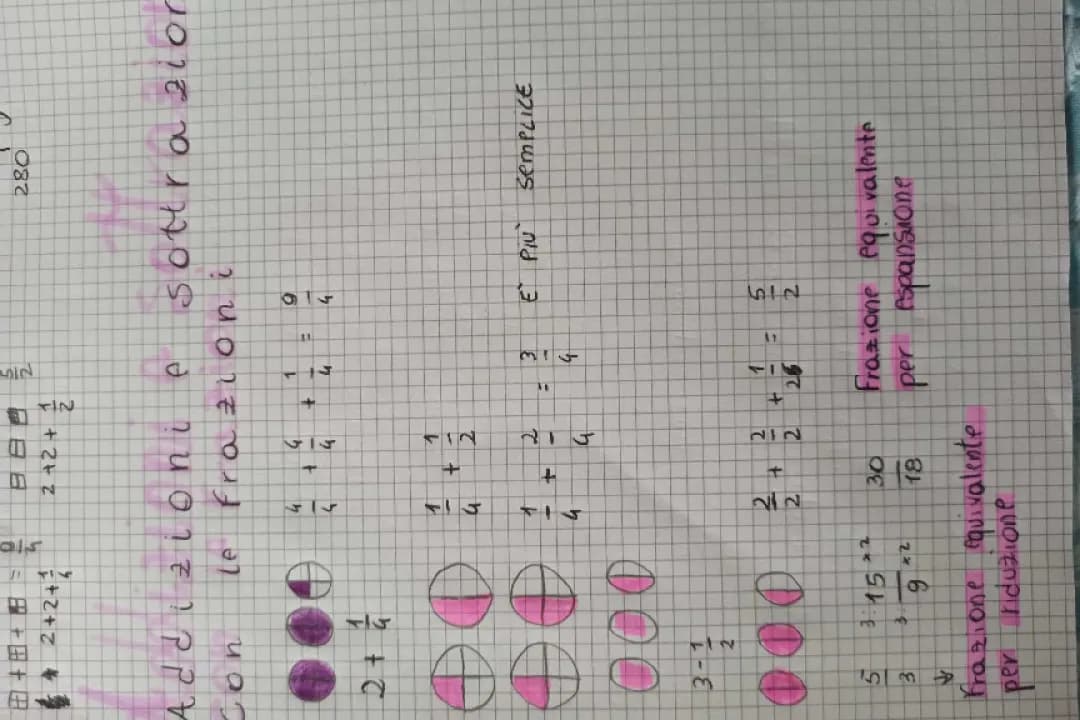 280
⊞ + ⊞ + ⊞ = 9/4
5/2
2+2+1/4
2+2+1/2
Addizioni e sottrazion
con le frazioni
4/4 + 4/4 + 1/4 = 9/4
2 + 1/4
1/4 + 1/2
1/4 + 2/4 = 3/4 E' PIÙ SEMPLICE
3 - 1/2
2/2 + 2/2 + 1/2 = 5/2
5/3 3: 15/9 ×2 30/18 Frazione equivalente
per espansione
Frazione equivalente
per riduzione